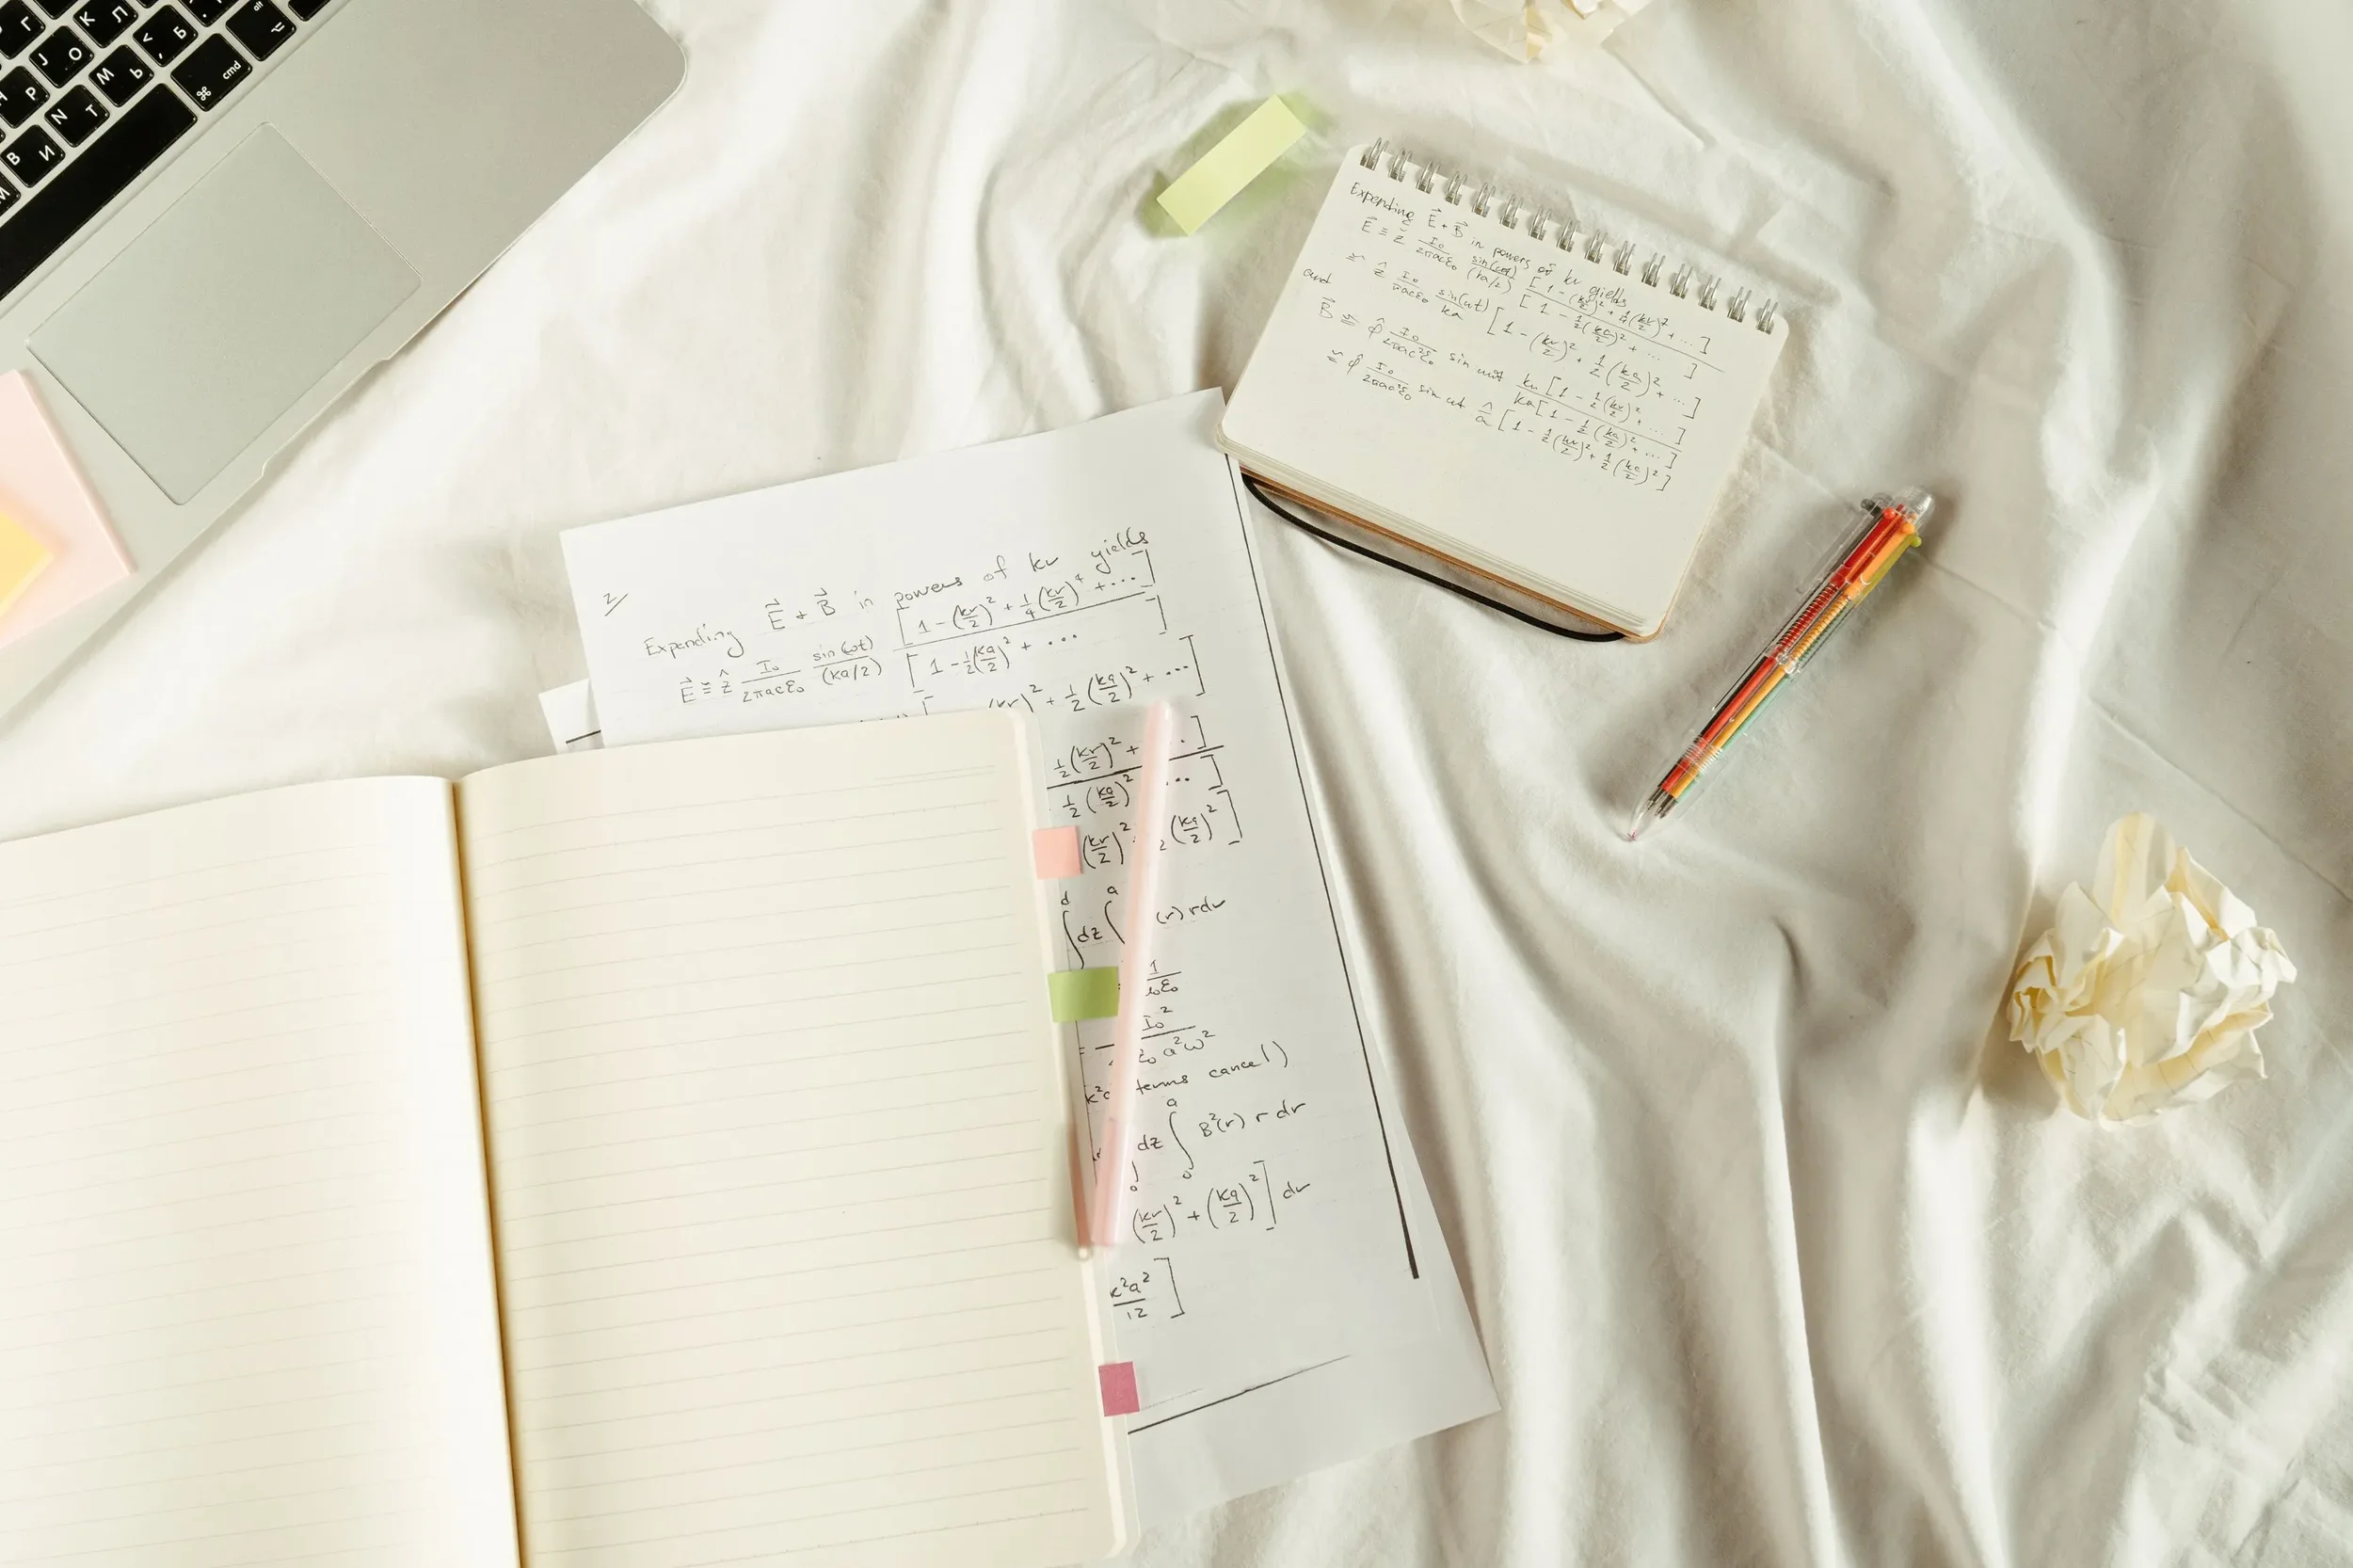 Г К Л < , Б alt ⌥
J О М Ь ⌘ cmd
Р N Т
В И
М
Expending E⃗ + B⃗ in powers of kr yields
E⃗ ≅ ẑ I₀/2πacε₀ sin(ωt)/(ka/2) [1 - (kr/2)² + 1/4(kr/2)⁴ + ...]/[1 - 1/2(ka/2)² + ...]
≅ ẑ I₀/πacε₀ sin(ωt)/ka [1 - (kr/2)² + 1/2(ka/2)² + ...]
and
B⃗ ≅ φ̂ I₀/2πac²ε₀ sin ωt kr[1 - 1/2(kr/2)² + ...]/ka[1 - 1/2(ka/2)² + ...]
≅ φ̂ I₀/2πac²ε₀ sin ωt [1 - 1/2(kr/2)² + 1/2(ka/2)²]
2/
Expending E⃗ + B⃗ in powers of kr yields
E⃗ ≅ ẑ I₀/2πacε₀ sin(ωt)/(ka/2) [1 - (kr/2)² + 1/4(kr/2)⁴ + ....]/[1 - 1/2(ka/2)² + ...]
(kr)² + 1/2(ka/2)² + ...]
1/2(kr/2)² + ..]
1/2(ka/2)² ...]
(kr/2)² 2(ka/2)²]
∫ᵈ dz ∫ᵃ (r) r dr
1/ε₀
= I₀²/ε₀ a²ω²
terms cancel)
∫₀ dz ∫₀ᵃ B²(r) r dr
(kr/2)² + (ka/2)²] dr
k²a²/12]